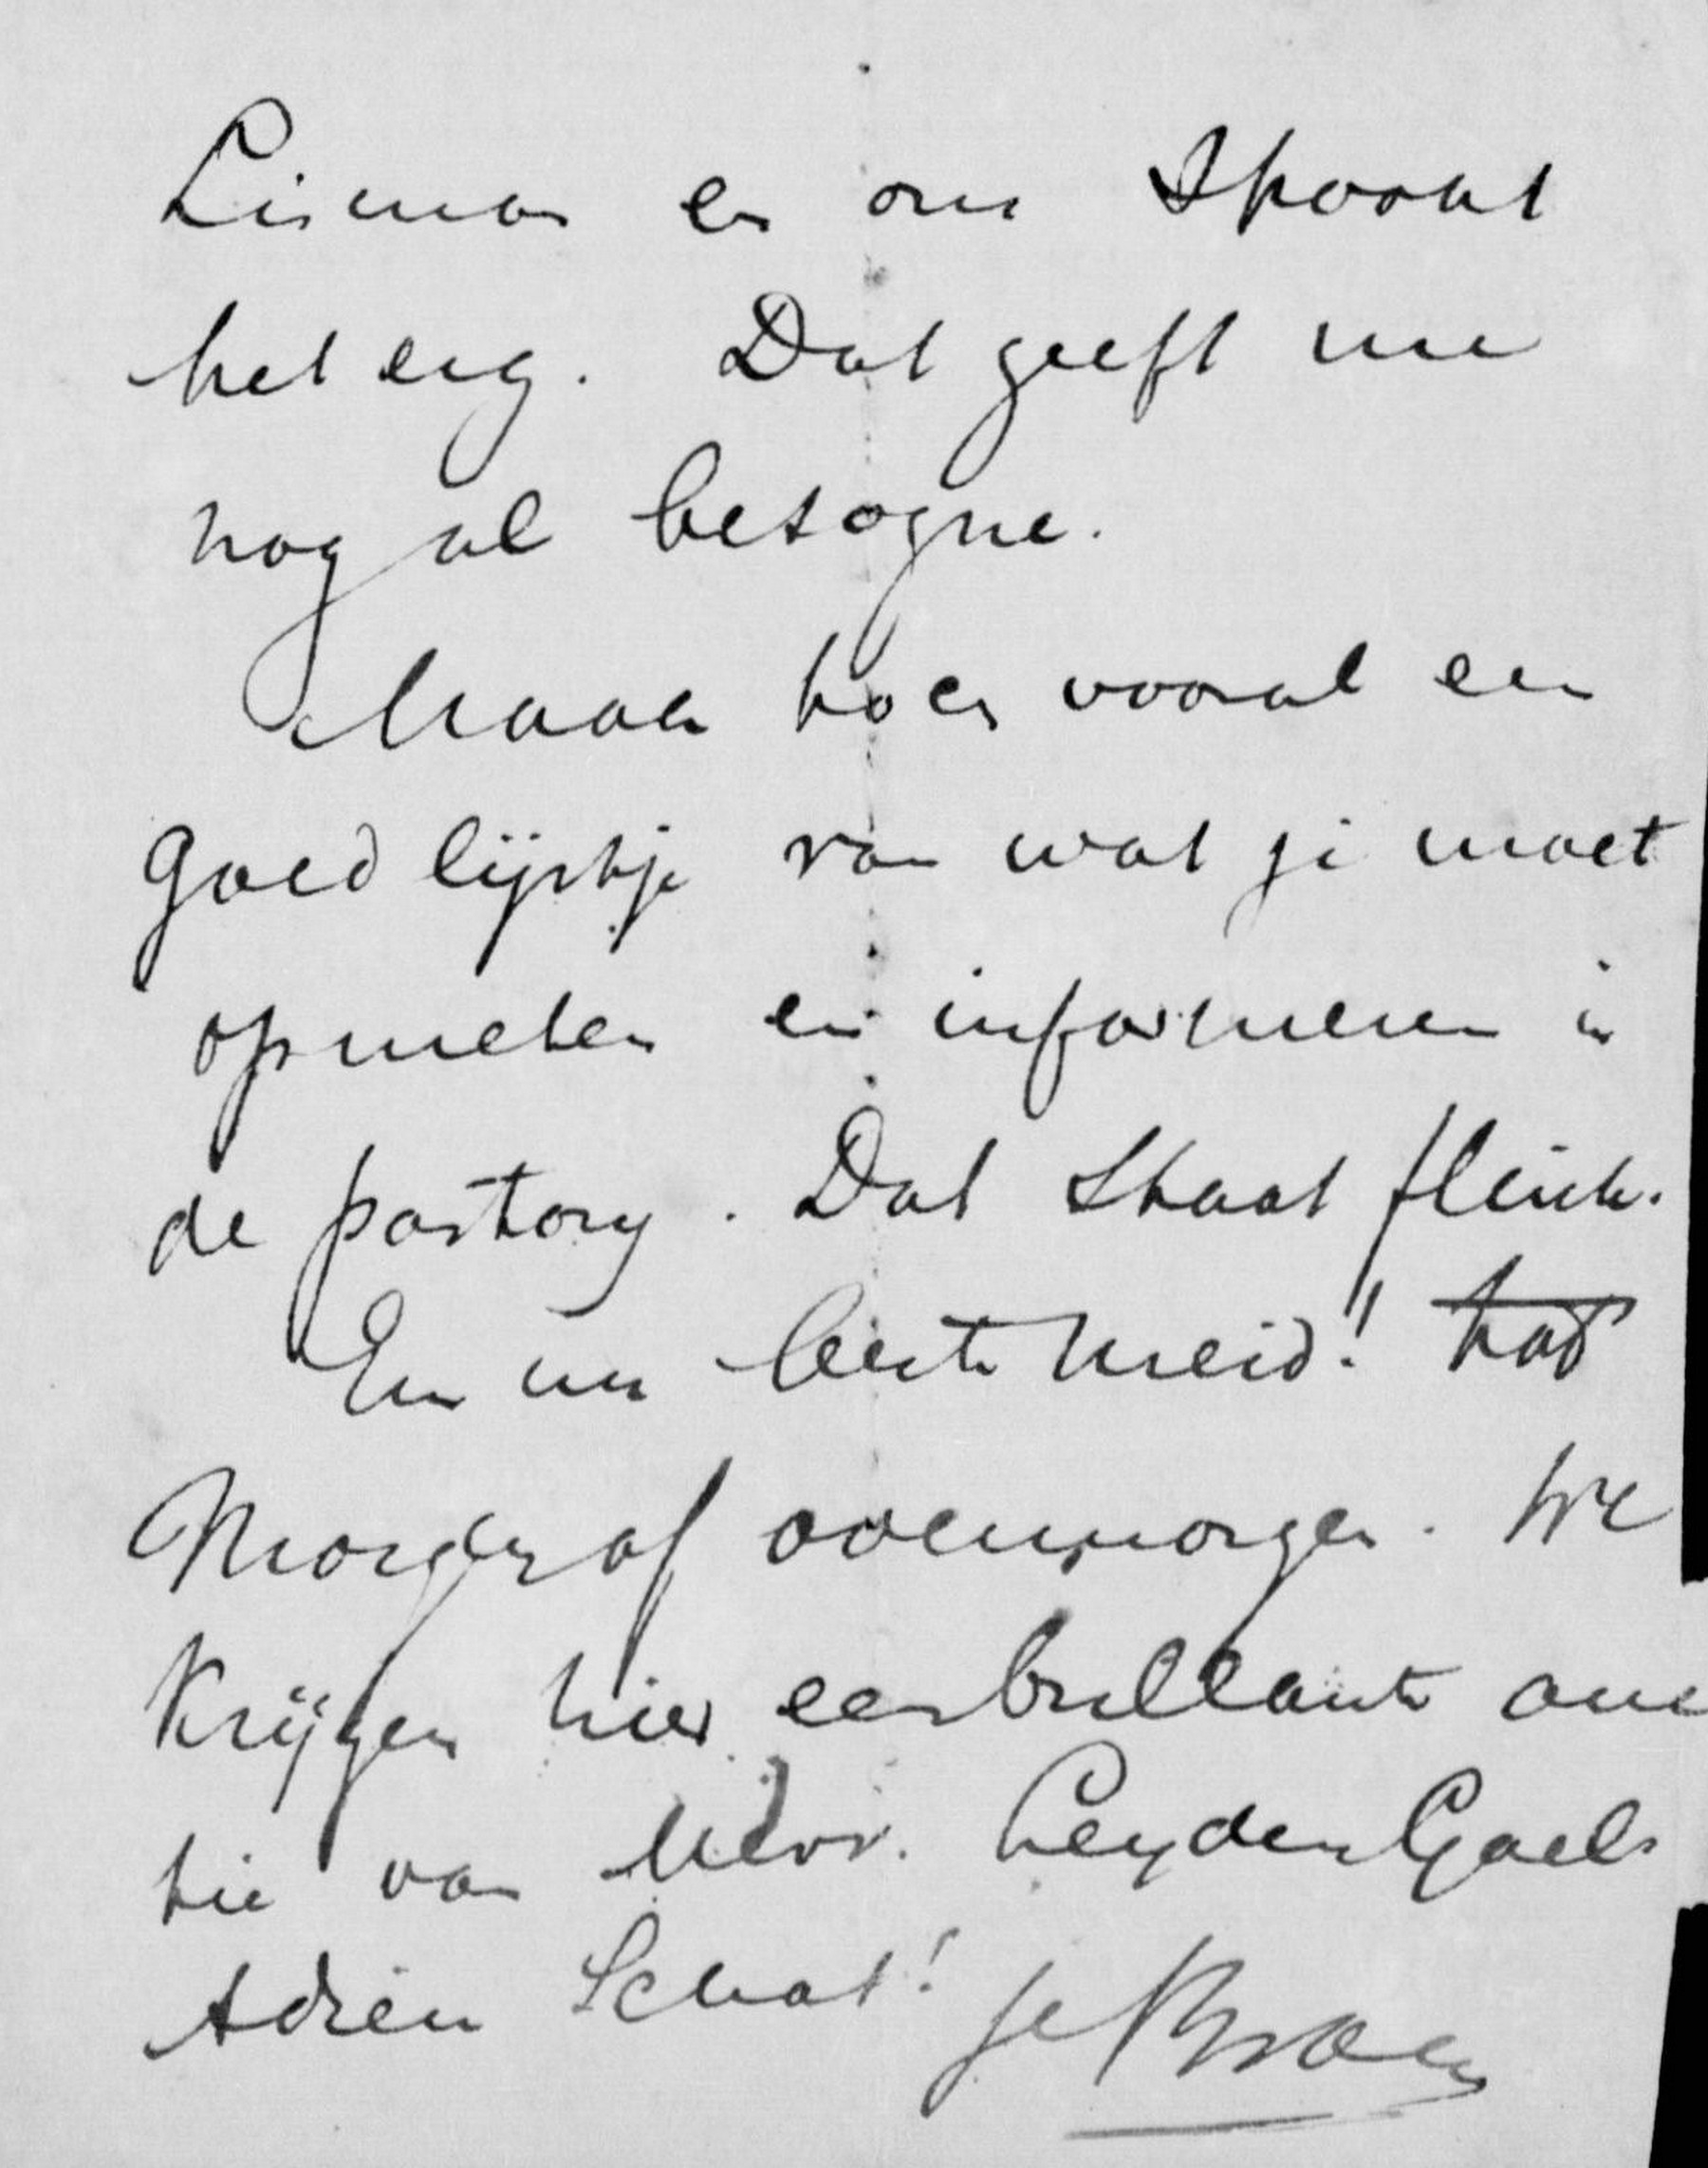 Lisman en om spookt
het erg. Dat geeft me
nog al besogne.
Maar hoes vooral een
goed lijstje van wat je moet
opmeten en informeren in
de pastory. Dat staat flink.
En nu beste meid! tot
Morgen of overmorgen. We
Krijgen hier een brillante auc
tie van Mevr. Leyden Gael.
Adieu Schat! je Broer